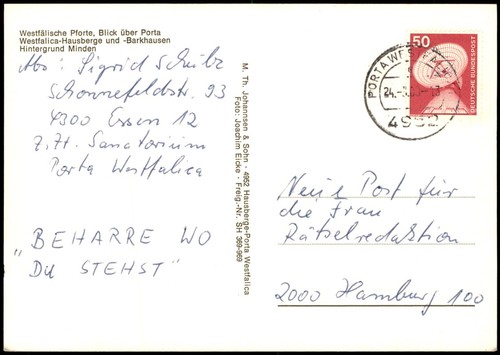 Westfälische Pforte, Blick über Porta
Westfalica-Hausberge und -Barkhausen
Hintergrund Minden
Abs: Sigrid Schulz
Schonnefeldstr. 93
4300 Essen 12
z. Zt. Sanatorium
Porta Westfalica
"BEHARRE WO
DU STEHST"
M. Th. Johannsen & Sohn · 4952 Hausberge-Porta Westfalica
Foto: Joachim Eicke · Freig.-Nr. SH 369-969
PORTA WEST
24.
4952
50
DEUTSCHE BUNDESPOST
Neue Post für
die Frau
Rätselredaktion
2000 Hamburg 100